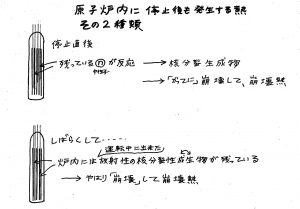 原子炉内に停止後も発生する熱
その2種類
停止直後
残っているⓝが反応 → 核分裂生成物
中性子
→「かってに」崩壊して、崩壊熱
しばらくして・・・・・
運転中に出来た
炉内には放射性の核分裂生成物が残っている
→ やはり「崩壊」して崩壊熱